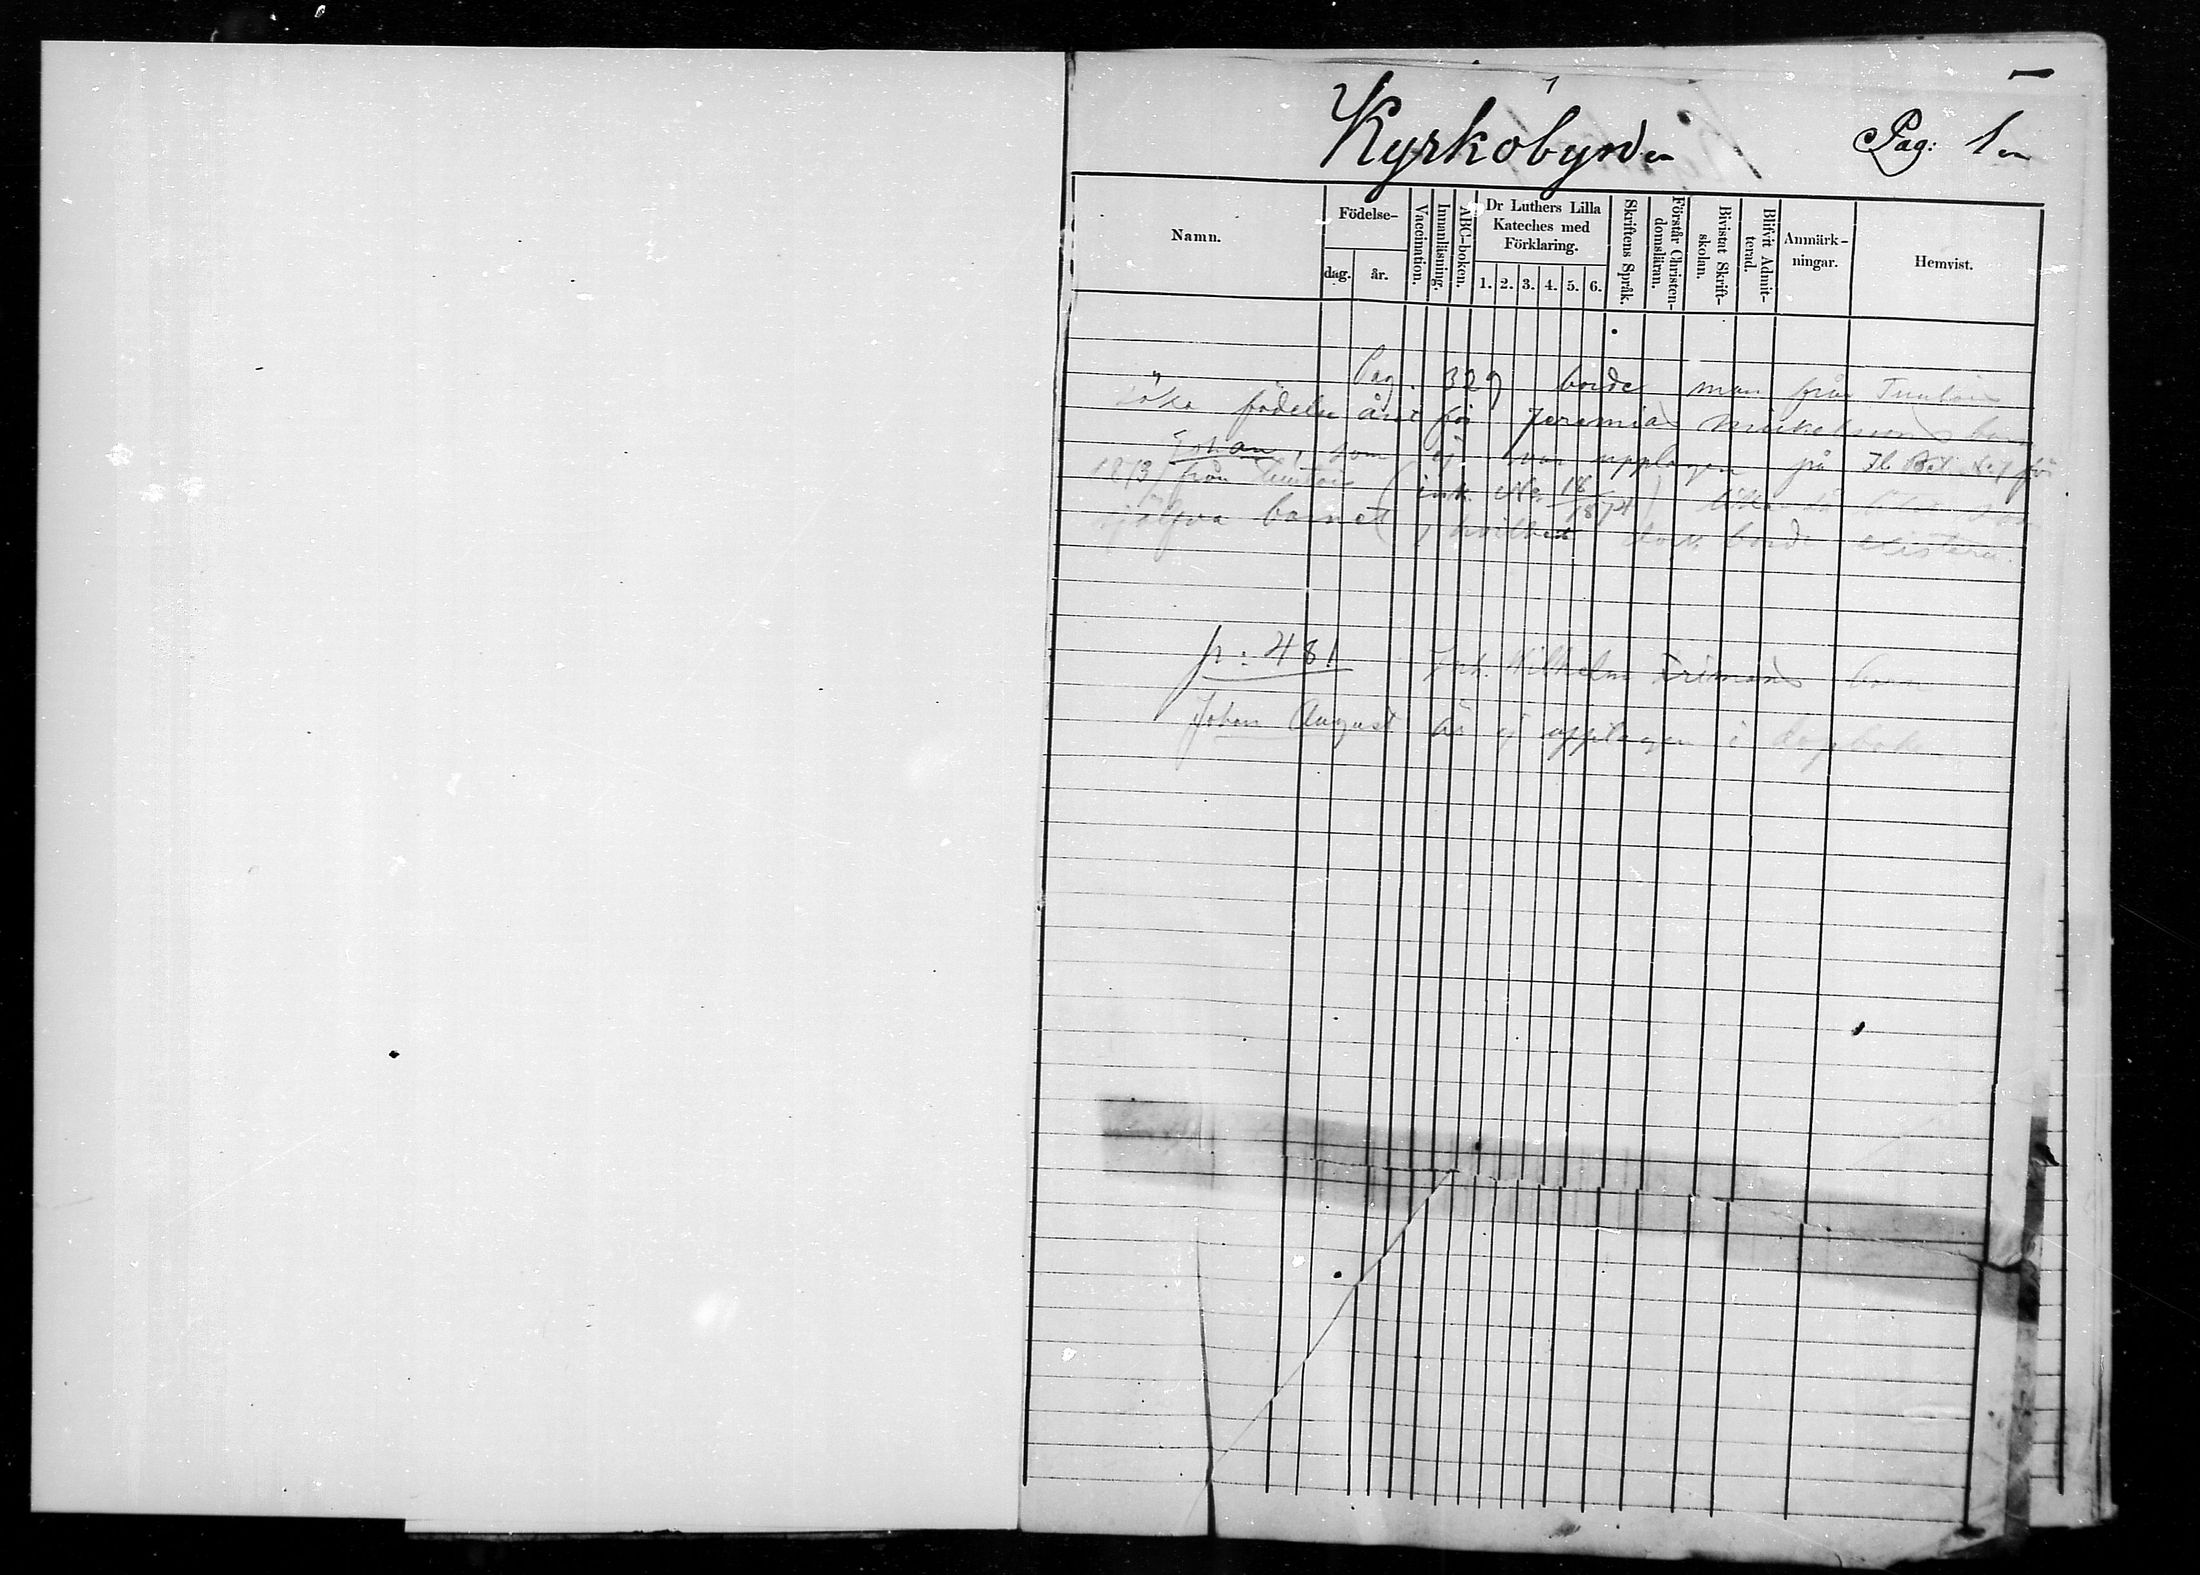 Kyrkobynden Pag: 1en
Namn. Födelse- dag. år. Vaccination. Innanläsning. ABC-boken. Dr Luthers Lilla Kateches med Förklaring. 1. 2. 3. 4. 5. 6. Skriftens Språk. Förstår Christen-domsläran. Bivistat Skrift-skolan. Blifvit Admit-terad. Anmärk-ningar. Hemvist.
Pag. 329 borde man från
söka födelse året för Jeremias barn
Johan, som ej var upptagen på för
1873 från (ink. 18/1874)
sjelfva barnet, hvilket dock borde existera.
p: 481 Wilhelm barn
Johan August är ej upptagen i dopboken